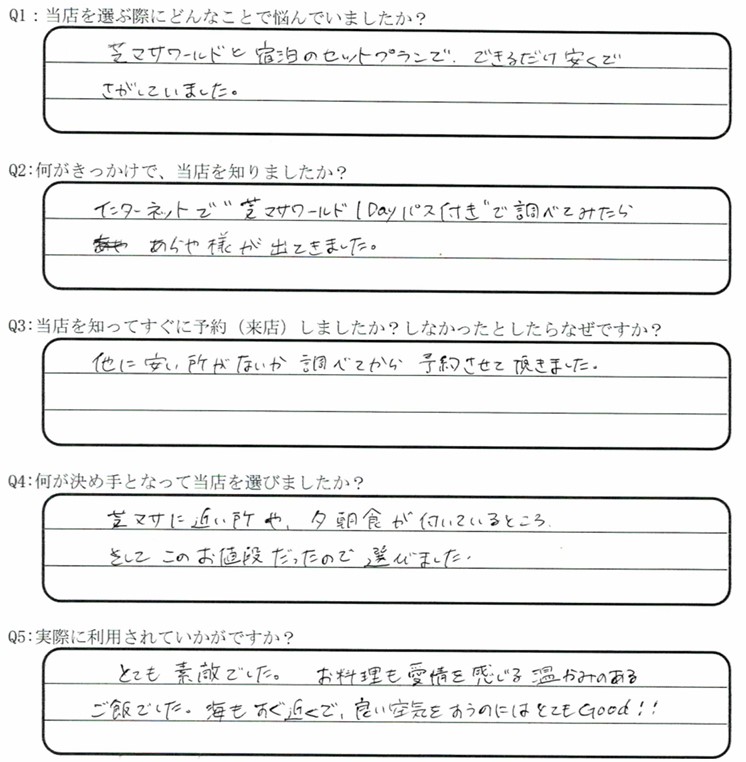 Q1：当店を選ぶ際にどんなことで悩んでいましたか？
芝マサワールドと宿泊のセットプランで、できるだけ安くで
さがしていました。
Q2:何がきっかけで、当店を知りましたか？
インターネットで"芝マサワールド1Dayパス付き"で調べてみたら
あらや様が出てきました。
Q3:当店を知ってすぐに予約（来店）しましたか？しなかったとしたらなぜですか？
他に安い所がないか調べてから予約させて頂きました。
Q4:何が決め手となって当店を選びましたか？
芝マサに近い所や、夕朝食が付いているところ、
そしてこのお値段だったので選びました。
Q5:実際に利用されていかがですか？
とても素敵でした。お料理も愛情を感じる温かみのある
ご飯でした。海もすぐ近くで、良い空気をすうのにはとてもGood!!